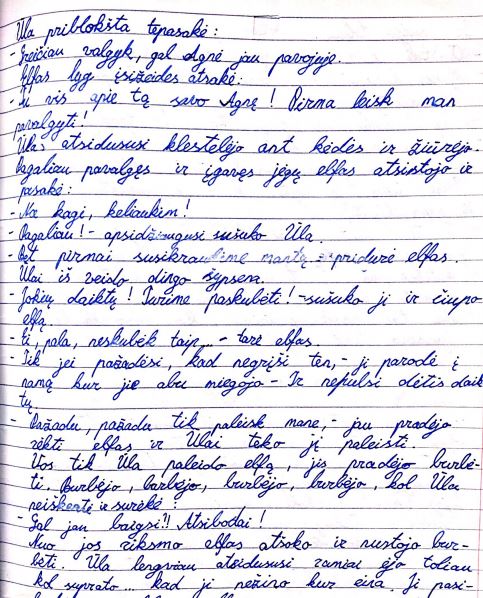 Ūla priblokšta tepasakė:
- Greičiau valgyk, gal Agnė jau pavojuje.
Elfas lyg įsižeidęs atsakė:
- Tu vis apie tą savo Agnę! Pirma leisk man
pavalgyti!
Ūla atsidususi klestelėjo ant kėdės ir žiūrėjo.
Pagaliau pavalgęs ir įgavęs jėgų elfas atsistojo ir
pasakė:
- Na kągi, keliaukim!
- Pagaliau! - apsidžiaugusi sušuko Ūla.
- Bet pirmai susikraukime mantą - pridūrė elfas.
Ūlai iš veido dingo šypsena.
- Jokių daiktų! Turime paskubėti! - sušuko ji ir čiupo
elfą.
- ti, pala, neskubėk taip... - tarė elfas.
- Tik jei pažadėsi, kad negrįši ten, - ji parodė į
namą kur jie abu miegojo - Ir nepulsi dėtis daik
tų.
- Pažadu, pažadu tik paleisk mane, - jau pradėjo
rėkti elfas ir Ūlai teko jį paleisti.
Vos tik Ūla paleido elfą, jis pradėjo burbė-
ti. Burbėjo, burbėjo, burbėjo, burbėjo, kol Ūla
neiškentė ir surėkė:
- Gal jau baigsi?! Atsibodai!
Nuo jos riksmo elfas atšoko ir nustojo bur-
bėti. Ūla lengviau atsidususi ramiai ėjo toliau
kol suprato... kad ji nežino kur eina. Ji pasi-